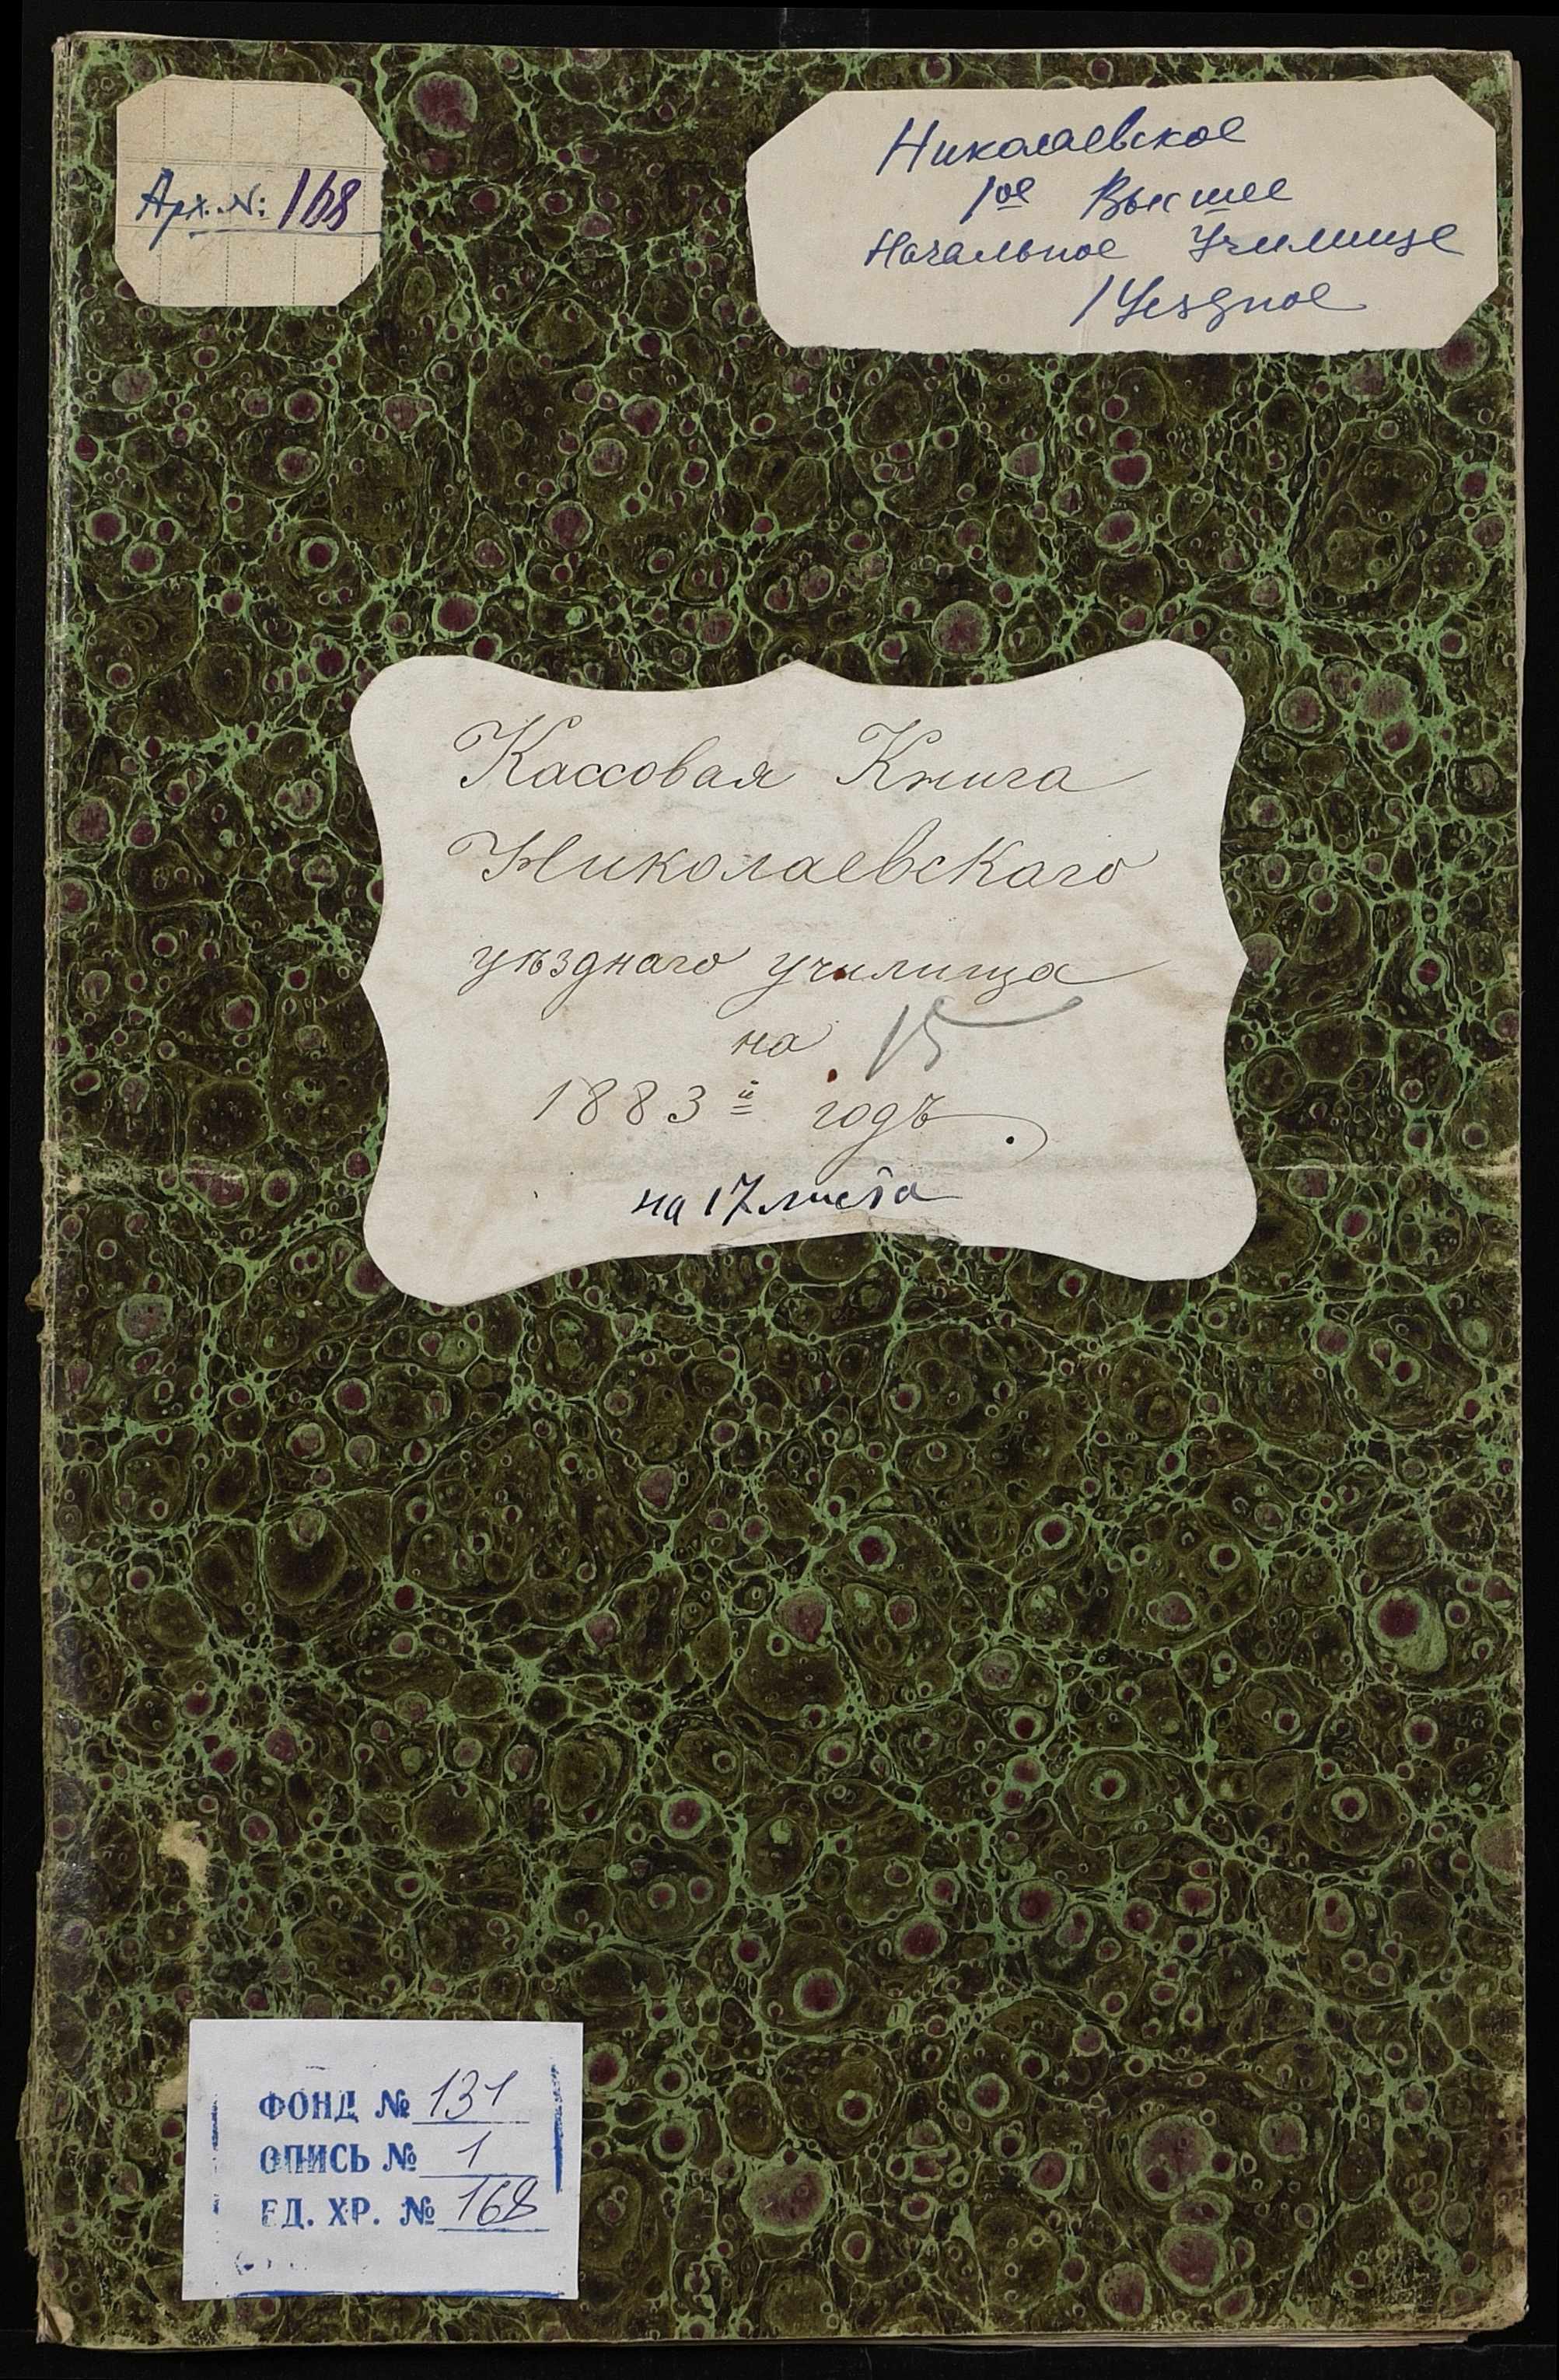 Арх. №: 168
Николаевское
1ое Высшее
Начальное Училище
/Уездное
Кассовая Книга
Николаевскаго
уѣзднаго училища
на 15
1883й годъ.
на 17 листа
ФОНД № 131
ОПИСЬ № 1
ЕД. ХР. № 168